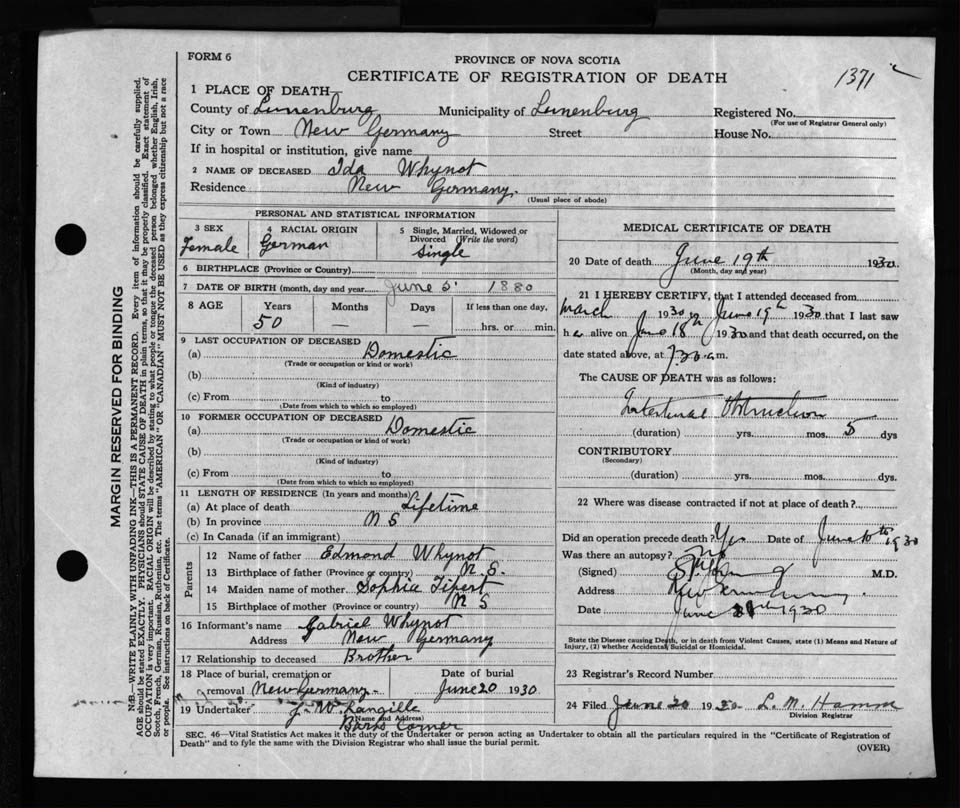 FORM 6
PROVINCE OF NOVA SCOTIA
CERTIFICATE OF REGISTRATION OF DEATH
1371
1 PLACE OF DEATH
County of Lunenburg Municipality of Lunenburg Registered No.
(For use of Registrar General only)
City or Town New Germany Street House No.
If in hospital or institution, give name
2 NAME OF DECEASED Ida Whynot
Residence New Germany.
(Usual place of abode)
PERSONAL AND STATISTICAL INFORMATION
3 SEX 4 RACIAL ORIGIN 5 Single, Married, Widowed or Divorced (Write the word)
Female German Single
6 BIRTHPLACE (Province or Country)
7 DATE OF BIRTH (month, day and year) June 5 1880
8 AGE Years Months Days If less than one day,
50 — — hrs. or min.
9 LAST OCCUPATION OF DECEASED
(a) Domestic
(Trade or occupation or kind or work)
(b)
(Kind of industry)
(c) From to
(Date from which to which so employed)
10 FORMER OCCUPATION OF DECEASED
(a) Domestic
(Trade or occupation or kind of work)
(b)
(Kind of industry)
(c) From to
(Date from which to which so employed)
11 LENGTH OF RESIDENCE (In years and months)
(a) At place of death Lifetime
(b) In province N S
(c) In Canada (if an immigrant)
Parents
12 Name of father Edmond Whynot
13 Birthplace of father (Province or country) N. S.
14 Maiden name of mother Sophie Tipert
15 Birthplace of mother (Province or country) N S
16 Informant's name Gabriel Whynot
Address New Germany
17 Relationship to deceased Brother
18 Place of burial, cremation or removal New Germany Date of burial June 20 1930
19 Undertaker J. W. Langille
(Name and Address)
Barss Corner
MEDICAL CERTIFICATE OF DEATH
20 Date of death June 19th 1930
(Month, day and year)
21 I HEREBY CERTIFY, that I attended deceased from
March 1930 to June 19th 1930 that I last saw
h er alive on June 18th 1930 and that death occurred, on the
date stated above, at 7.30 a.m.
The CAUSE OF DEATH was as follows:
Intestinal Obstruction
(duration) yrs. mos. 5 dys
CONTRIBUTORY
(Secondary)
(duration) yrs. mos. dys
22 Where was disease contracted if not at place of death?
Did an operation precede death? Yes Date of June 1930
Was there an autopsy? No
(Signed) M.D.
Address New Germany
Date June 1930
State the Disease causing Death, or in death from Violent Causes, state (1) Means and Nature of
Injury, (2) whether Accidental, Suicidal or Homicidal.
23 Registrar's Record Number
24 Filed June 20 1930 L. M. Hamm
Division Registrar
SEC. 46—Vital Statistics Act makes it the duty of the Undertaker or person acting as Undertaker to obtain all the particulars required in the "Certificate of Registration of
Death" and to fyle the same with the Division Registrar who shall issue the burial permit.
(OVER)
MARGIN RESERVED FOR BINDING
N.B.—WRITE PLAINLY WITH UNFADING INK—THIS IS A PERMANENT RECORD. Every item of information should be carefully supplied.
AGE should be stated EXACTLY. PHYSICIANS should STATE CAUSE OF DEATH in plain terms, so that it may be properly classified. Exact statement of
OCCUPATION is very important. RACIAL ORIGIN will be described by stating to what people or tongue the deceased person belonged whether English, Irish,
Scotch, French, German, Russian, Ruthenian, etc. The terms "AMERICAN" OR "CANADIAN" MUST NOT BE USED as they express citizenship but not a race
or people. See instructions on back of Certificate.